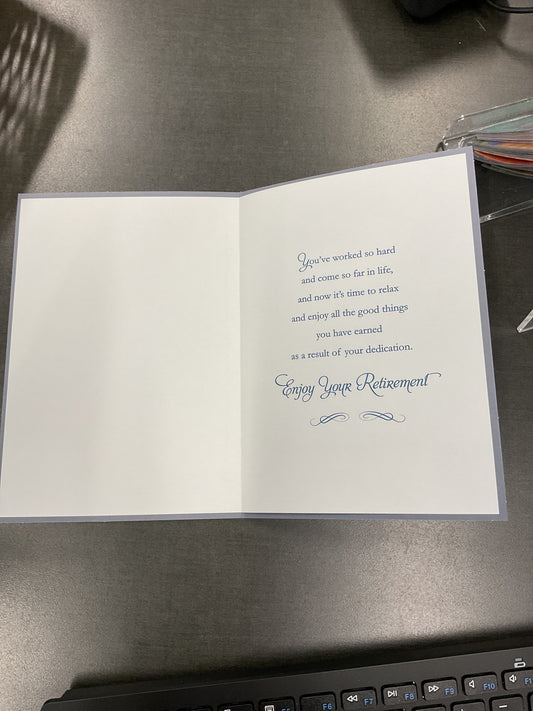 You've worked so hard
and come so far in life,
and now it's time to relax
and enjoy all the good things
you have earned
as a result of your dedication.
Enjoy Your Retirement
F6 F7 F8 F9 F10